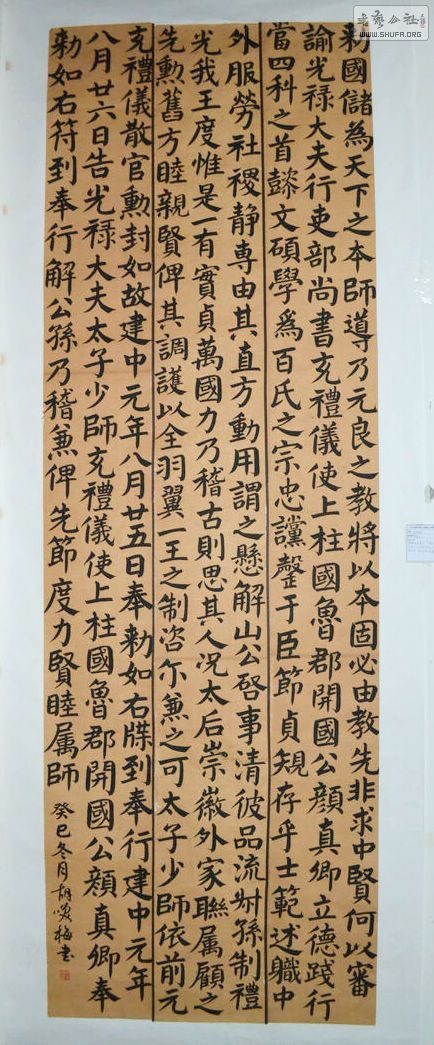 书艺公社
WWW.SHUFA.ORG
勑國儲為天下之本師導乃元良之教將以本固必由教先非求中賢何以審
諭光禄大夫行吏部尚書充禮儀使上柱國魯郡開國公顏真卿立德踐行
當四科之首懿文碩學爲百氏之宗忠讜罄于臣節貞規存乎士範述職中
外服勞社稷静専由其直方動用謂之懸解山公啓事清彼品流叔孫制禮
光我王度惟是一有實貞萬國力乃稽古則思其人况太后崇徽外家聯属顧之
先勳舊方睦親賢俾其調護以全羽翼一王之制咨尔兼之可太子少師依前元
充禮儀散官勳封如故建中元年八月廿五日奉勑如右牒到奉行建中元年
八月廿六日告光禄大夫太子少師充禮儀使上柱國魯郡開國公顏真卿奉
勑如右符到奉行解公孫乃稽兼俾先節度力賢睦属師
癸巳冬月胡梅書